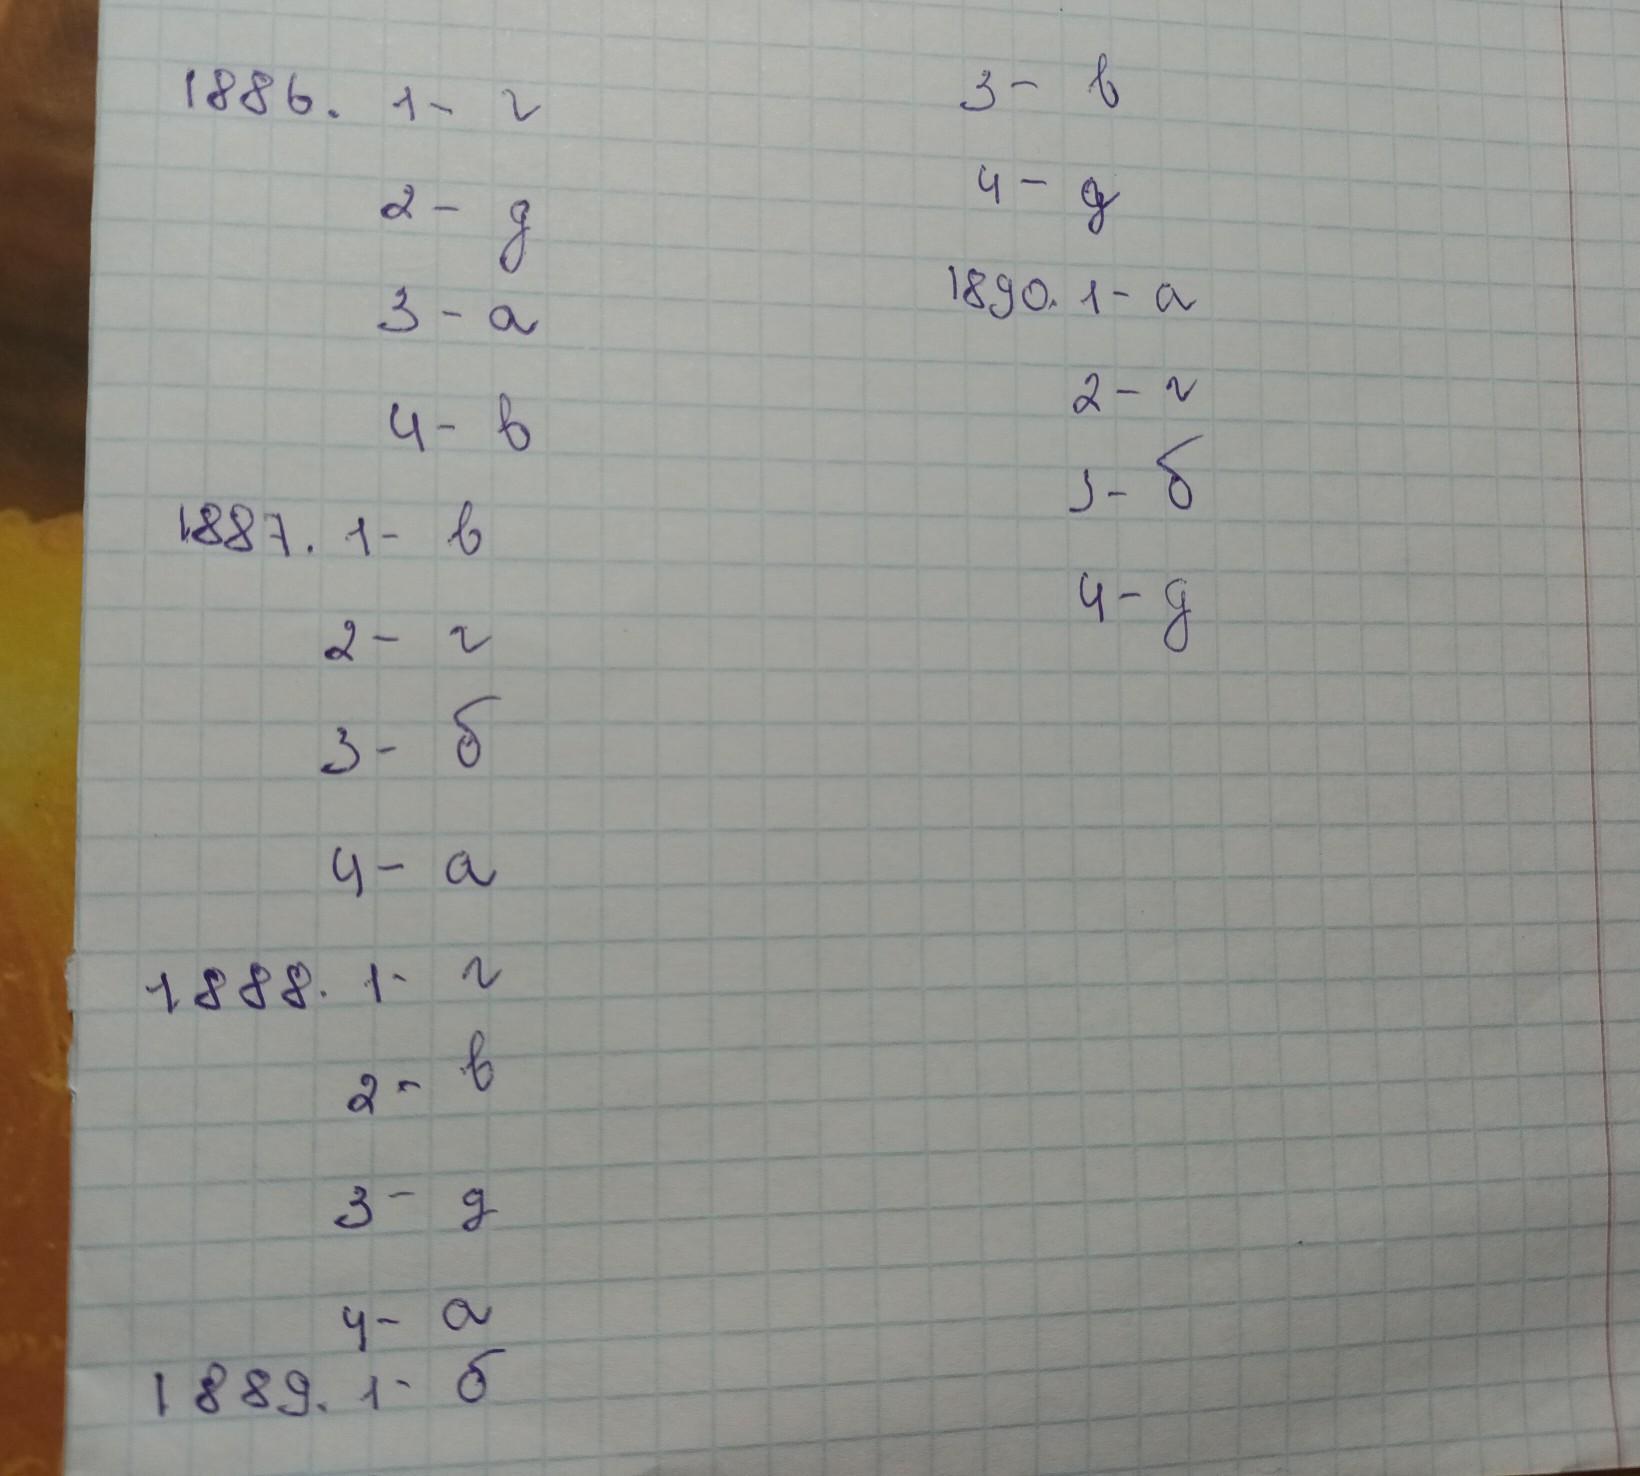 1886. 1- г
2- д
3- а
4- в
1887. 1- в
2- г
3- б
4- а
1888. 1- г
2- в
3- д
4- а
1889. 1- б
3- в
4- д
1890. 1- а
2- г
3- б
4- д